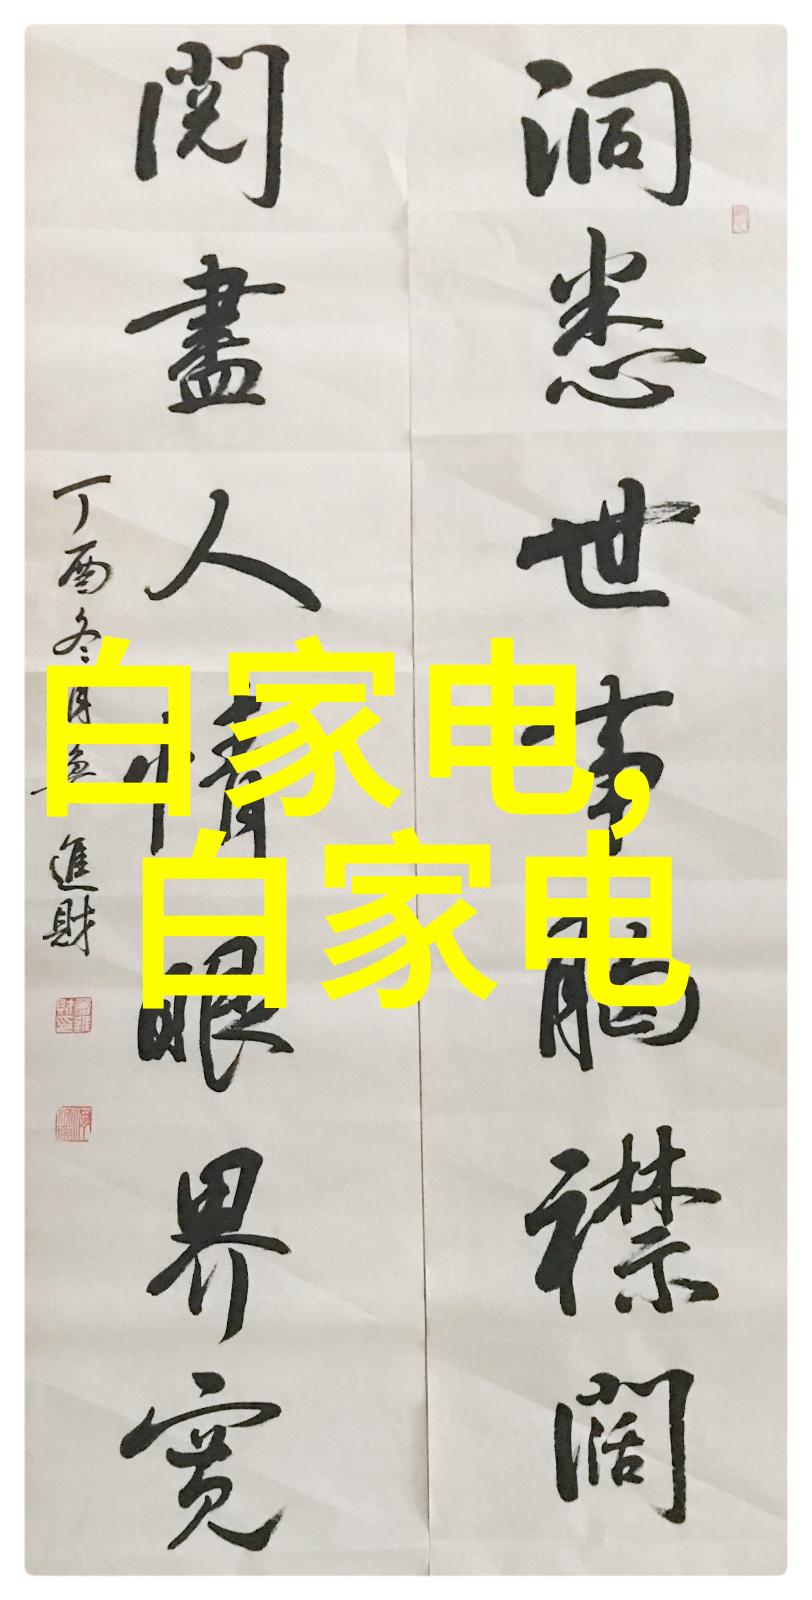 洞悉世事胸襟闊
閱盡人情眼界寬
丁酉冬月
進財
白家电,
白家电